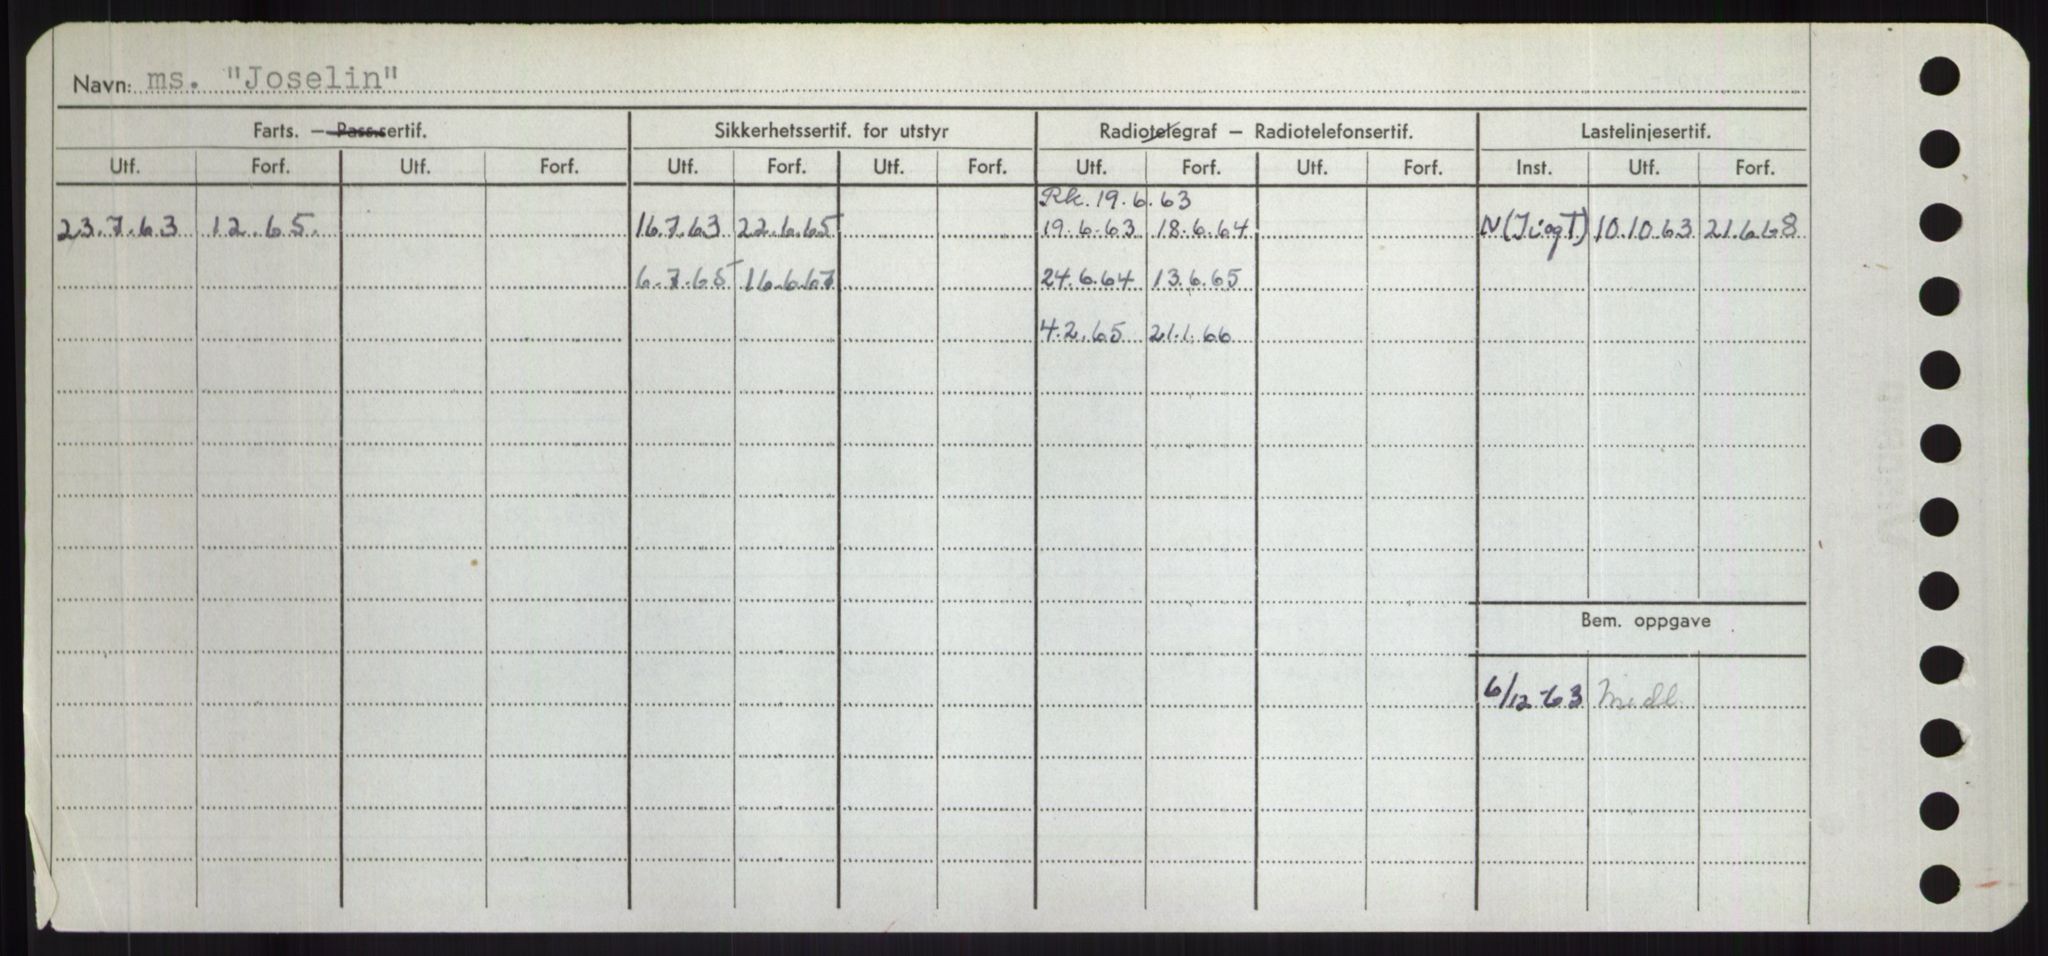 Navn: ms. "Joselin"
Farts. — Pass.sertif. Sikkerhetssertif. for utstyr Radiotelegraf — Radiotelefonsertif. Lastelinjesertif.
Utf. Forf. Utf. Forf. Utf. Forf. Utf. Forf. Utf. Forf. Utf. Forf. Inst. Utf. Forf.
Rk. 19.6.63
23.7.63 12.6.65. 16.7.63 22.6.65 19.6.63 18.6.64 N(J.i og T) 10.10.63 21.6.68
6.7.65 16.6.67 24.6.64 13.6.65
4.2.65 21.1.66
Bem. oppgave
6/12-63 Medl.